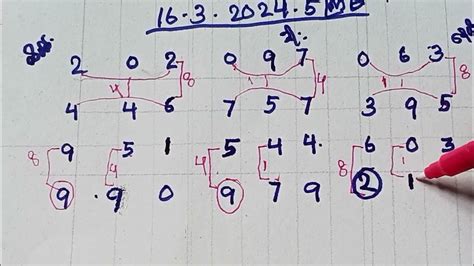 16.3.2024.5
2 0 2 8 0 9 7 4 0 6 3 8
4 1 1 1 1
4 4 6 7 5 7 3 9 5
9 5 1 5 4 4. 6 0 3
8 4 4 1 8 1
9 .9 0 9 7 9 2 1